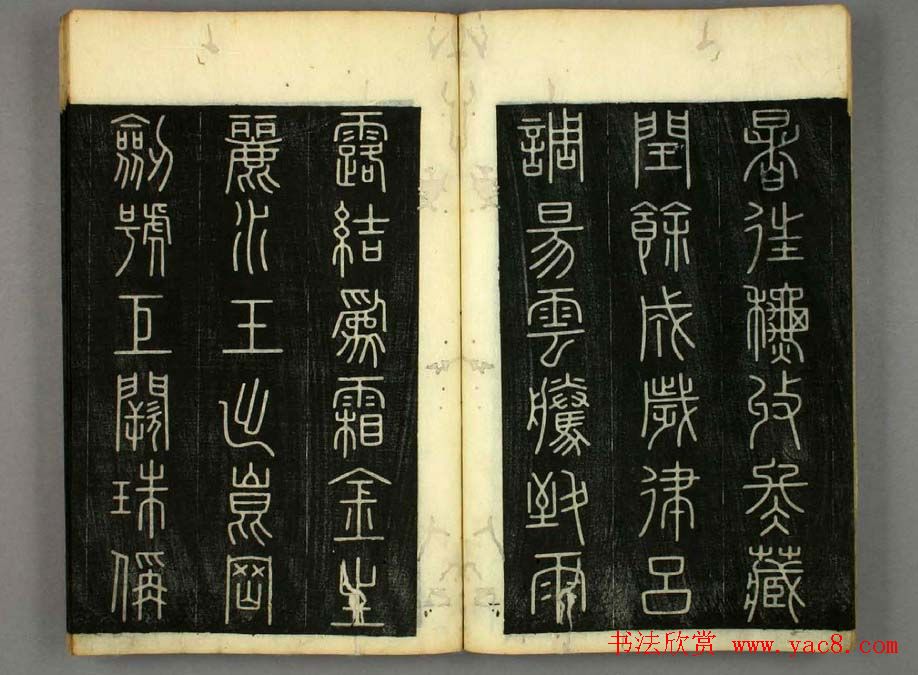 暑往穐收冬藏
閏餘成歲律呂
調昜雲騰致雨
露結爲霜金生
麗水玉出崑岡
劒號巨闕珠偁
书法欣赏 www.yac8.com